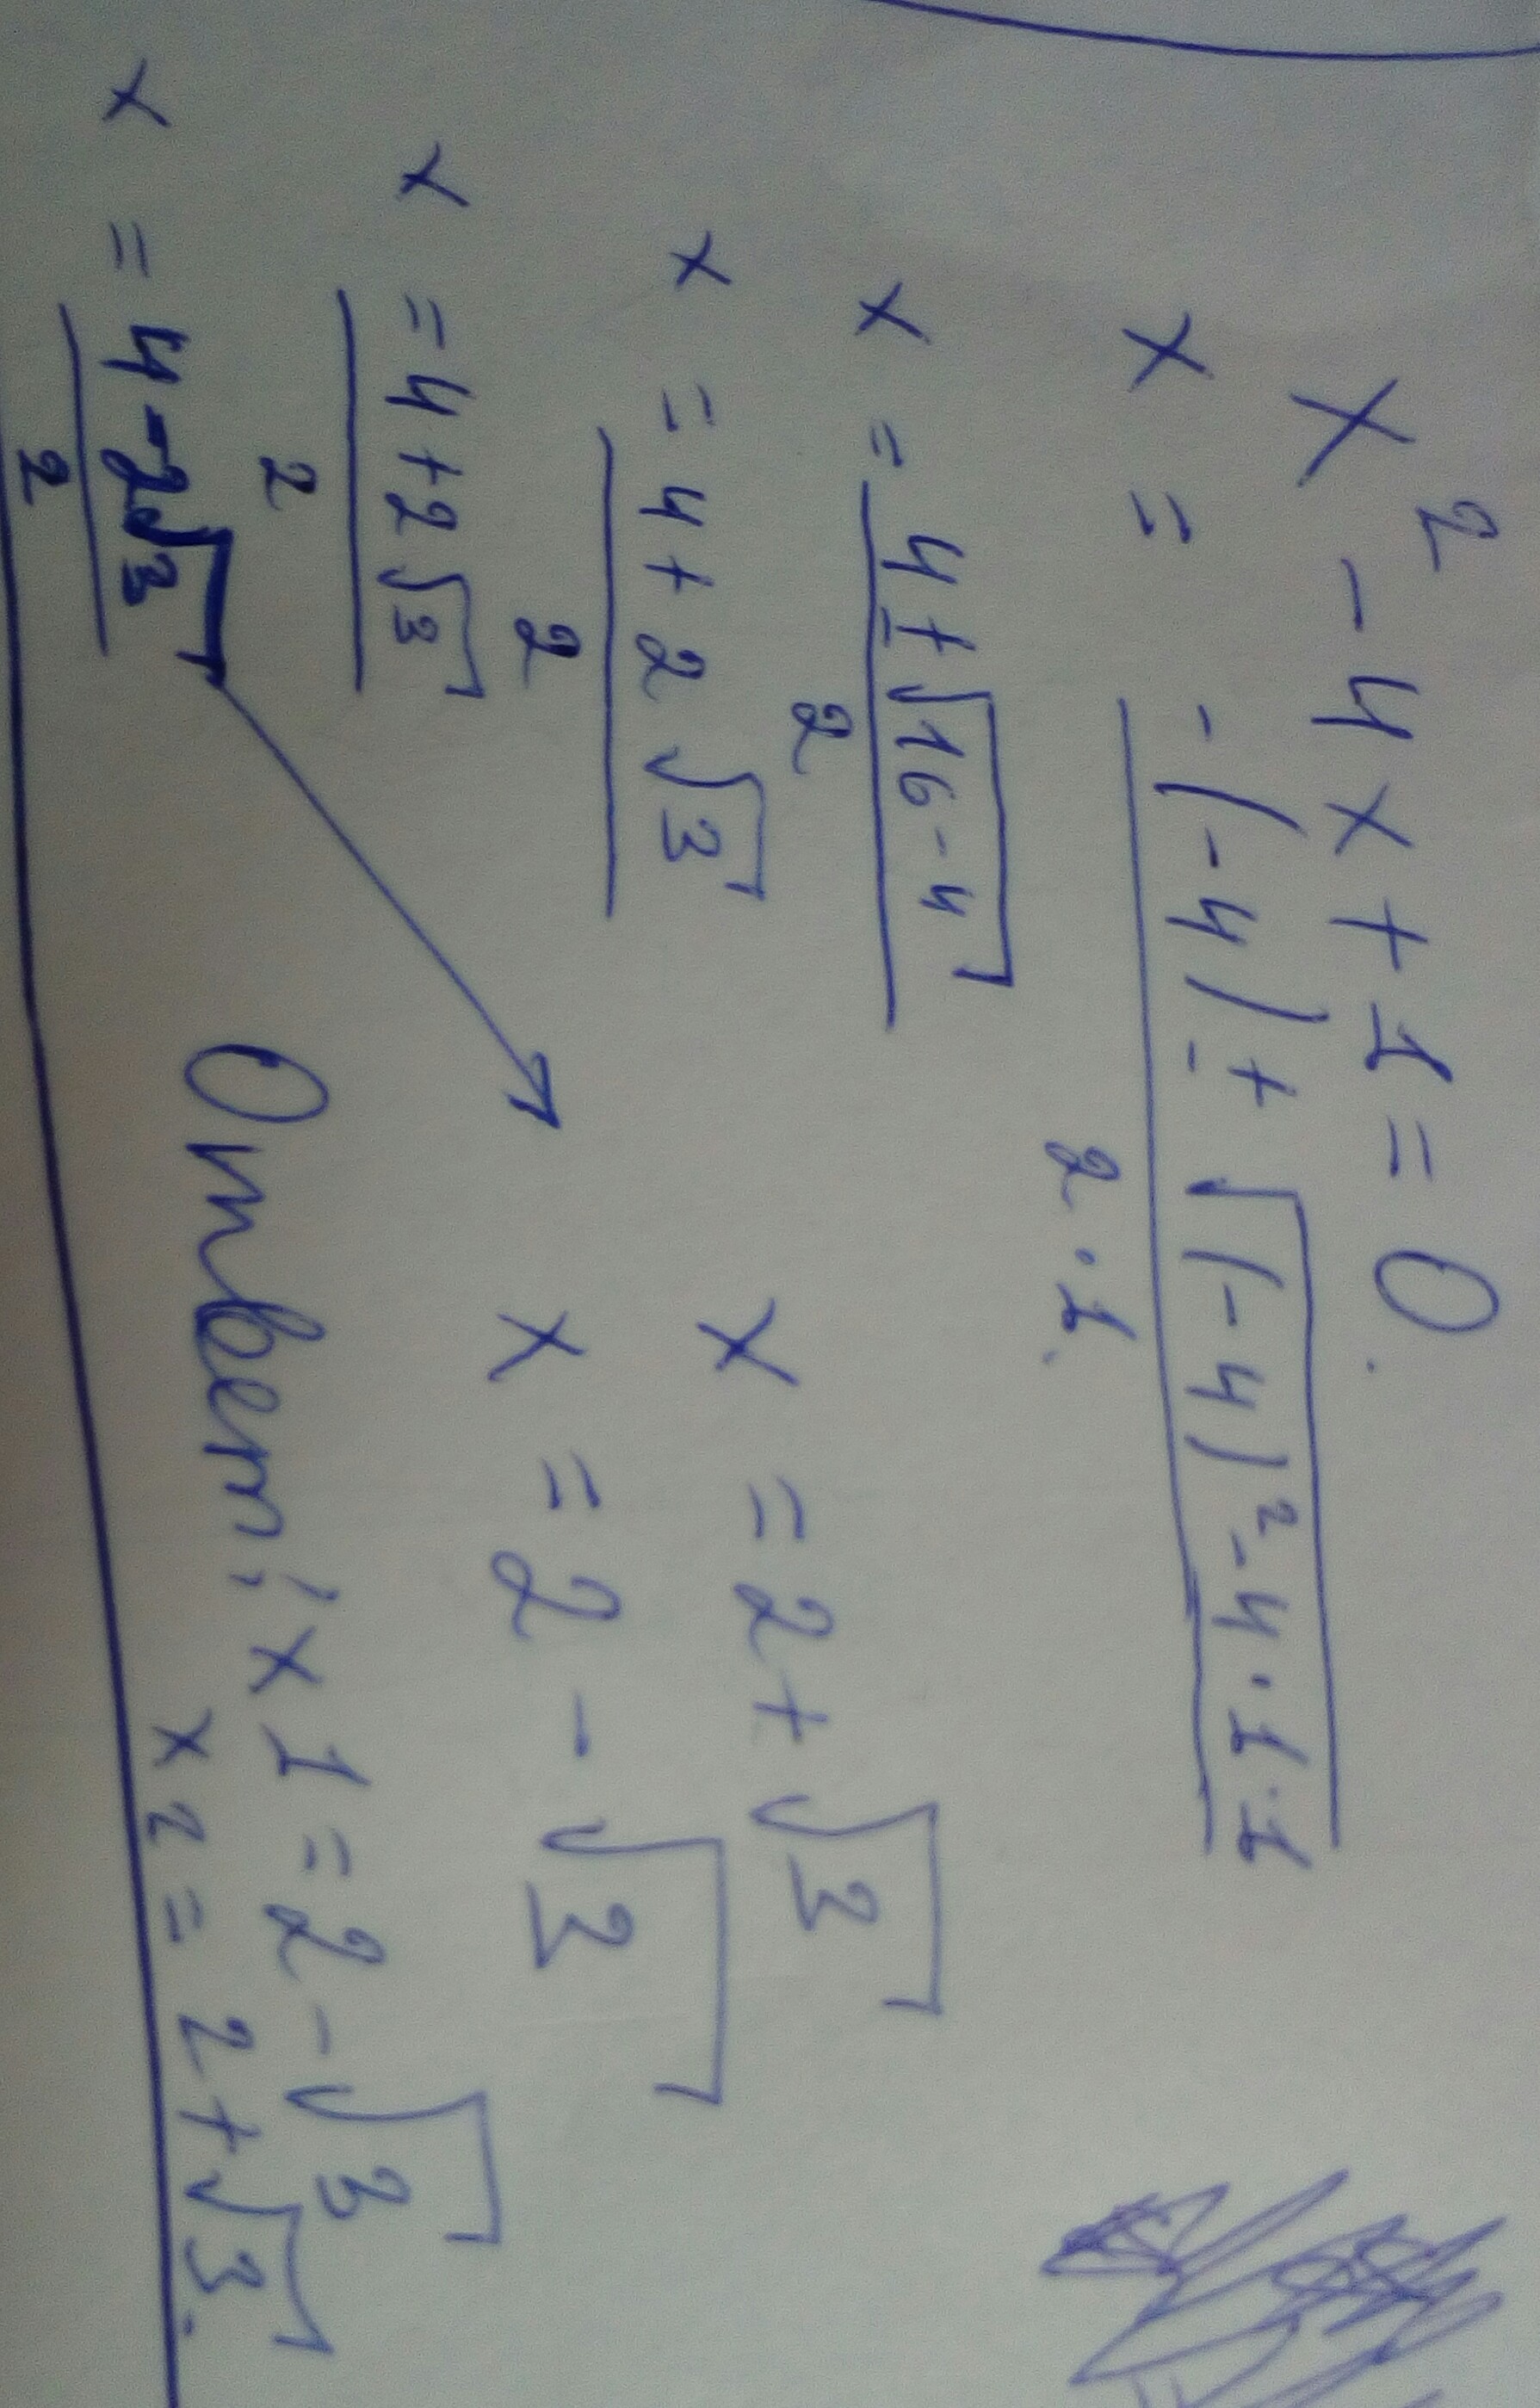 x² - 4x + 1 = 0.
x = -(-4) ± √(-4)² - 4 · 1 · 1
2 · 1.
x = 4 ± √16 - 4
2
x = 4 + 2 √3
2
x = 4 + 2 √3
2
x = 4 - 2√3
2
x = 2 + √3
x = 2 - √3
Ответ: x1 = 2 - √3
x2 = 2 + √3.